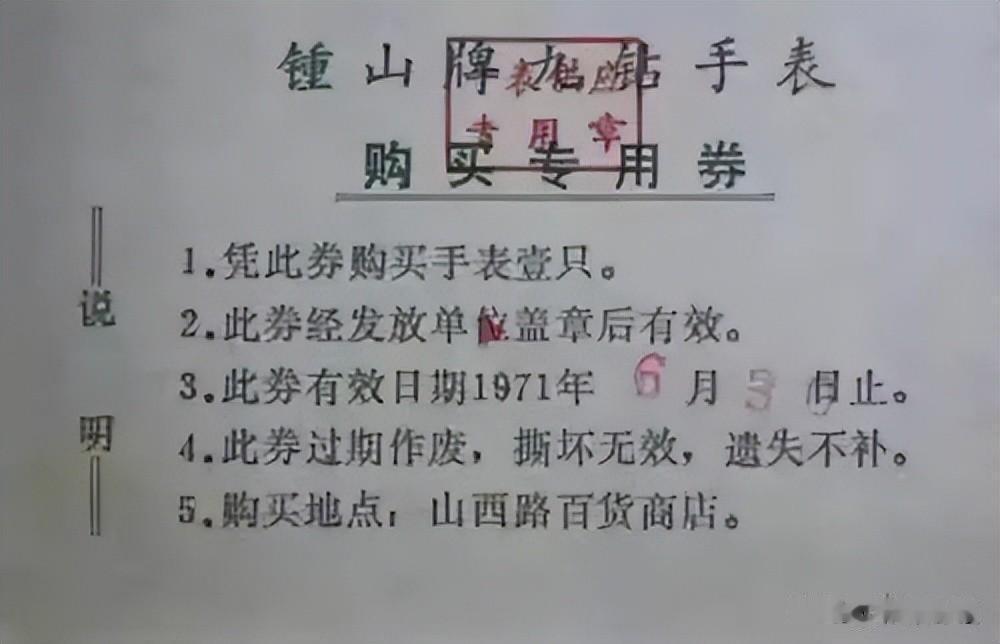 锺山牌九钻手表
购买专用券
专用章
说明
1.凭此券购买手表壹只。
2.此券经发放单位盖章后有效。
3.此券有效日期1971年 6 月 30 日止。
4.此券过期作废，撕坏无效，遗失不补。
5.购买地点：山西路百货商店。